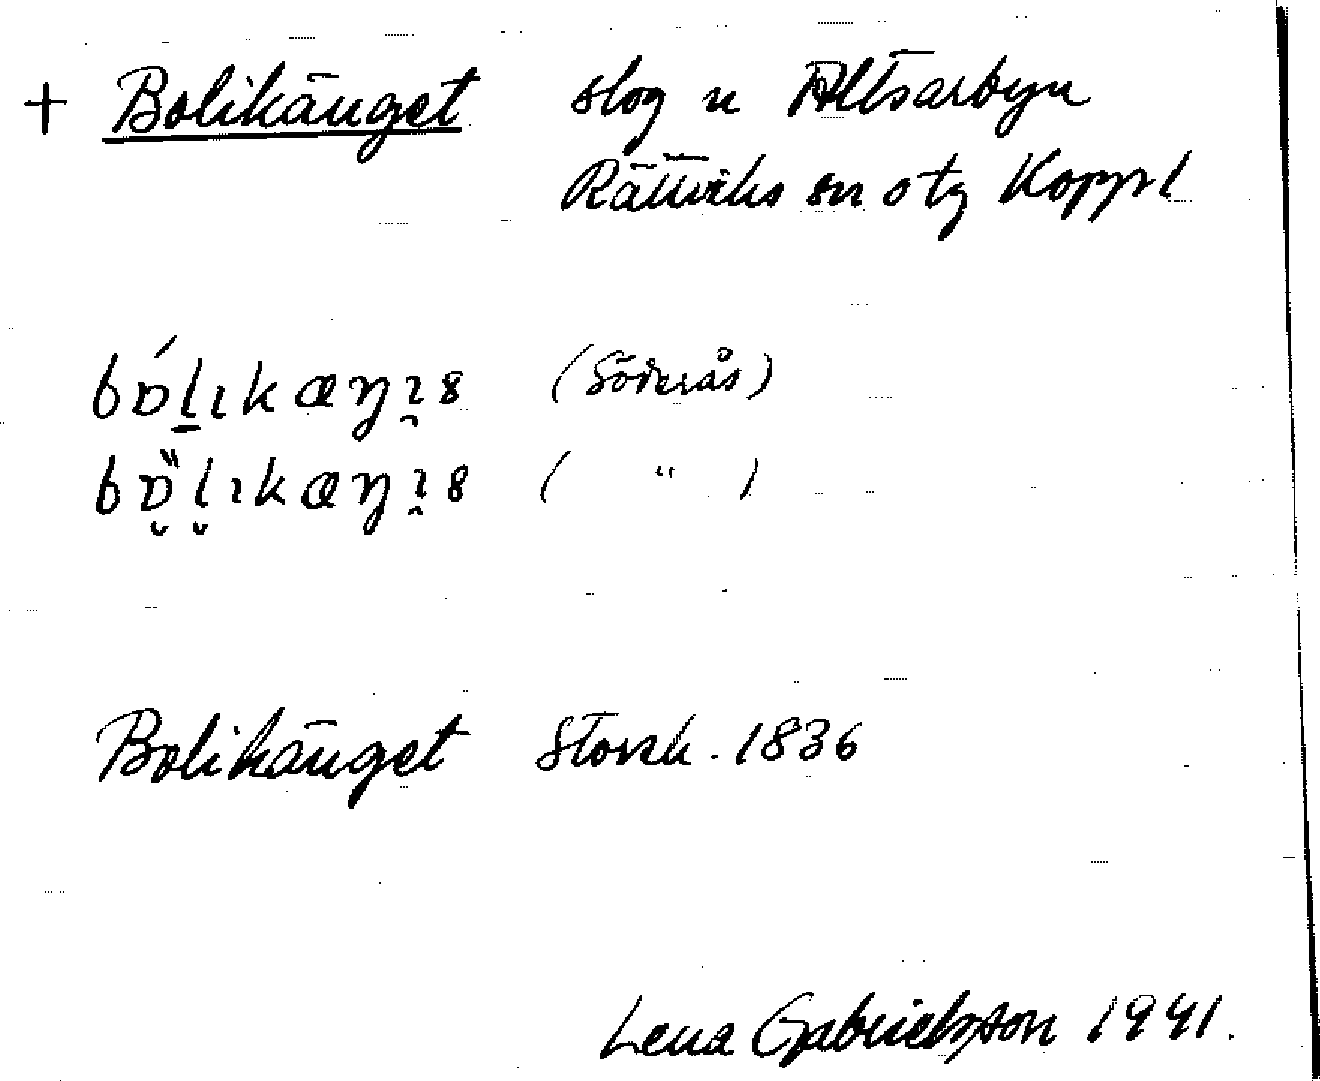 + Bolikänget slog n Altsarbyn
Rättviks sn o tg Koppl
bɒ́l̠ıkæŋı̯8 (Söderås)
bɒ̮̋l̮ıkæŋı̯8 ( " )
Bolikänget Storsk. 1836
Lena Gabrielsson 1941.